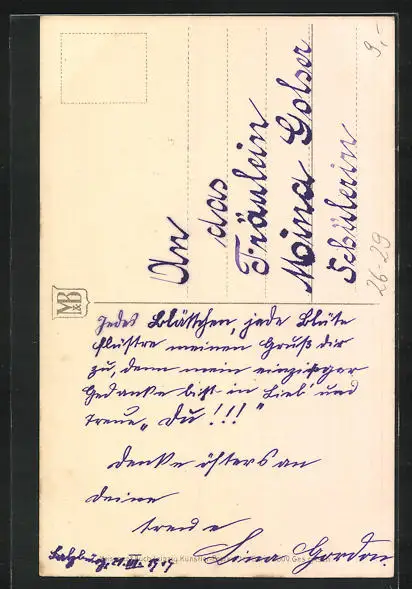 An
das
Fräulein
Mina Golser
Schülerin
9,-
26-29
M&B
Jedes Blättchen, jede Blüte
flüstre meinen Gruß dir
zu, denn mein einziger
Gedanke bist in Lieb' und
Treue, "Du!!!"
Denke öfters an
deine
treue
Lina Gordon.
Salzburg, 21. III. 1917